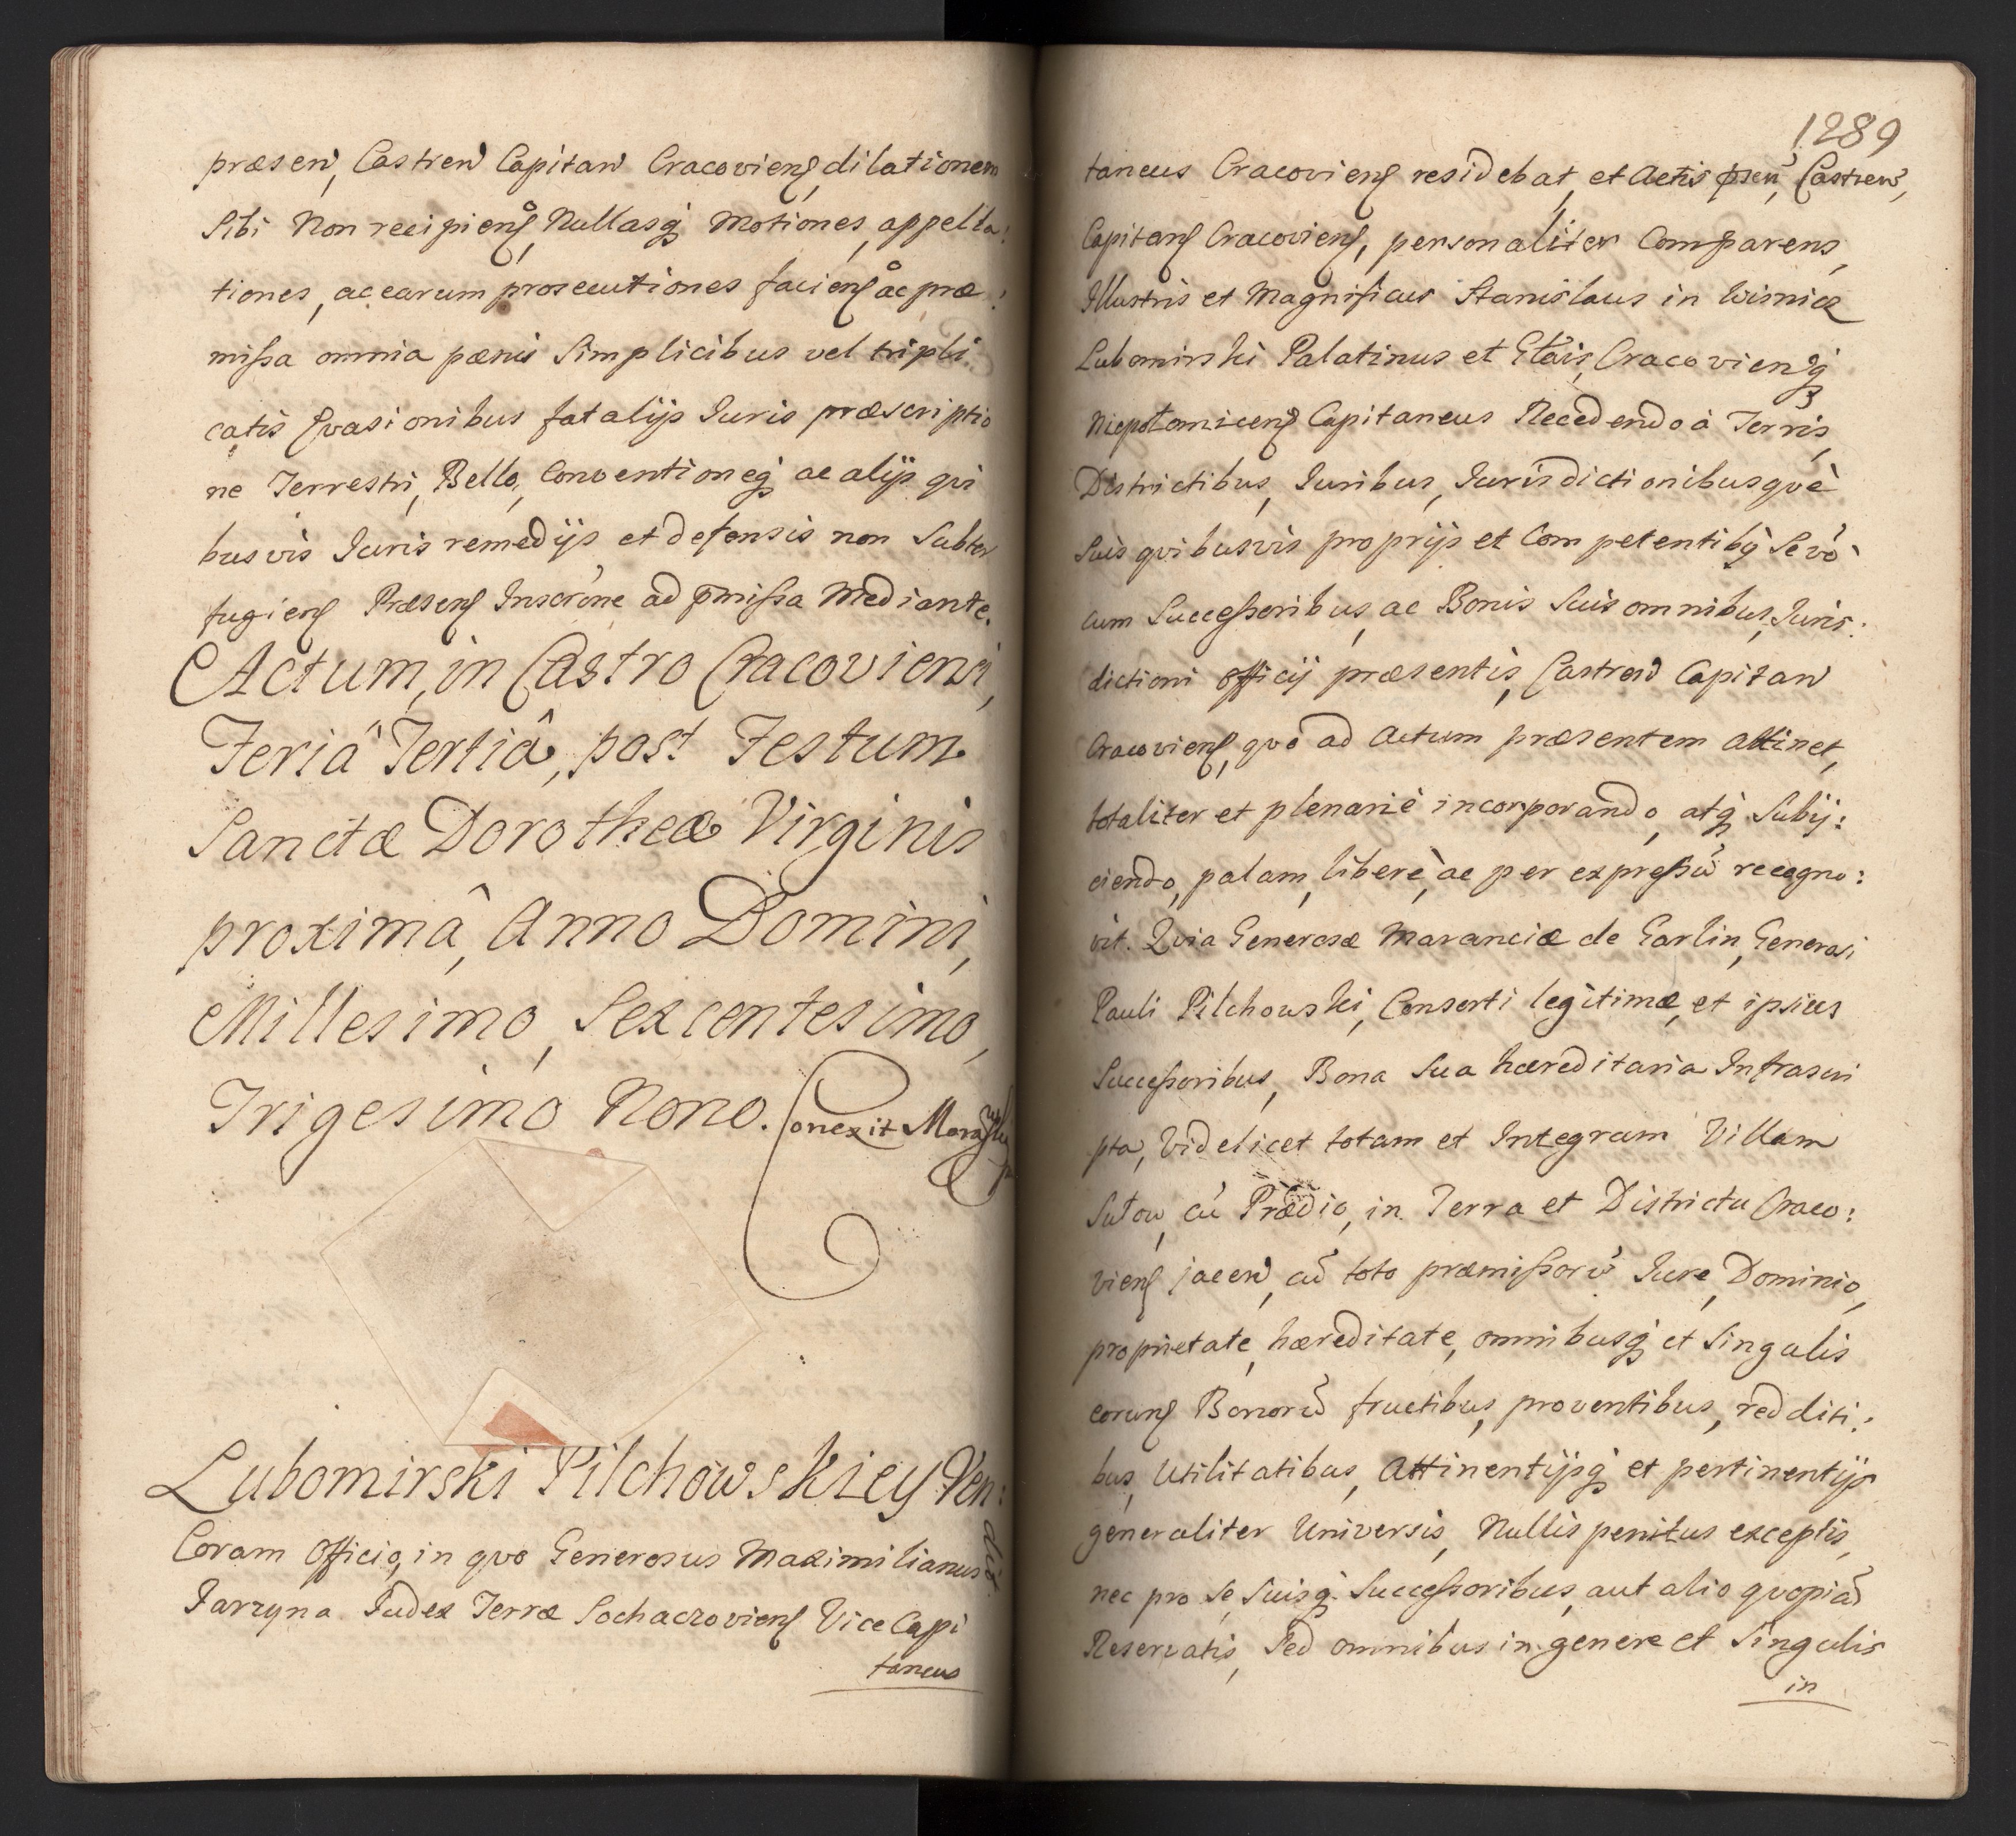 præsen, Castren Capitan Cracovien, dilationem
Sibi Non recipien, Nullasq motiones, appella:
tiones, ac earum prosecutiones facien ac præ:
missa omnia pœnis Simplicibus vel tripli
catis Evasionibus fatalijs Iuris præscriptio
ne Terrestri, Bello, Conventioneq ac alijs qui
busvis Iuris remedijs et defensis non Subter
fugien Præsen Inscrōne ad pmissa Mediante.
Actum, in Castro Cracoviensi,
Feriâ Tertiâ, post Festum
Sanctæ Dorotheæ Virginis
proximâ, Anno Domini,
Millesimo, Sexcentesimo,
Trigesimo Nono. Conexit
Lubomirski Pilchowskiey Ven:
dit
Coram Officio, in quo Generosus Maximilianus
Jarzyna Judex Terræ Sochaczovien Vice Capi
taneus
1289
taneus Cracovien residebat, et Actis psen, Castren,
Capitan Cracovien, personaliter Comparens,
Illustris et Magnificus Stanislaus in Wisnicz
Lubomirski Palatinus et Gńlis, Cracovienq
Niepołomicen Capitaneus Recedendo à Terris,
Districtibus, Iuribus, Iurisdictionibusquè
Suis quibusvis proprijs et Competentibq Se vò
cum Successoribus, ac Bonis Suis omnibus, Iuris:
dictioni officij præsentis, Castren Capitan
Cracovien, quo ad Actum præsentem attinet,
totaliter et plenariè incorporando, atq Subij:
ciendo, palam, liberè, ac per expressū recogno:
vit. Quia Generosæ Maranciæ de Garlin, Generosi
Pauli Pilchowski, Consorti legitimæ, et ipsius
Successoribus, Bona Sua hæreditaria Infrascri
pta, Videlicet totam et Integram Villam
Sułow, cū Prædio, in Terra et Districtu Craco:
vien jacen, cū toto præmissorū Iure, Dominio,
proprietate, hæreditate, omnibusq et Singulis
eorun Bonorū fructibus, proventibus, redditi:
bus, Utilitatibus, Attinentijsq et pertinentijs
generaliter Universis, Nullis penitus exceptis,
nec pro Se, Suisq Successoribus, aut alio quopiā
Reservatis, Sed omnibus in genere et Singulis
in